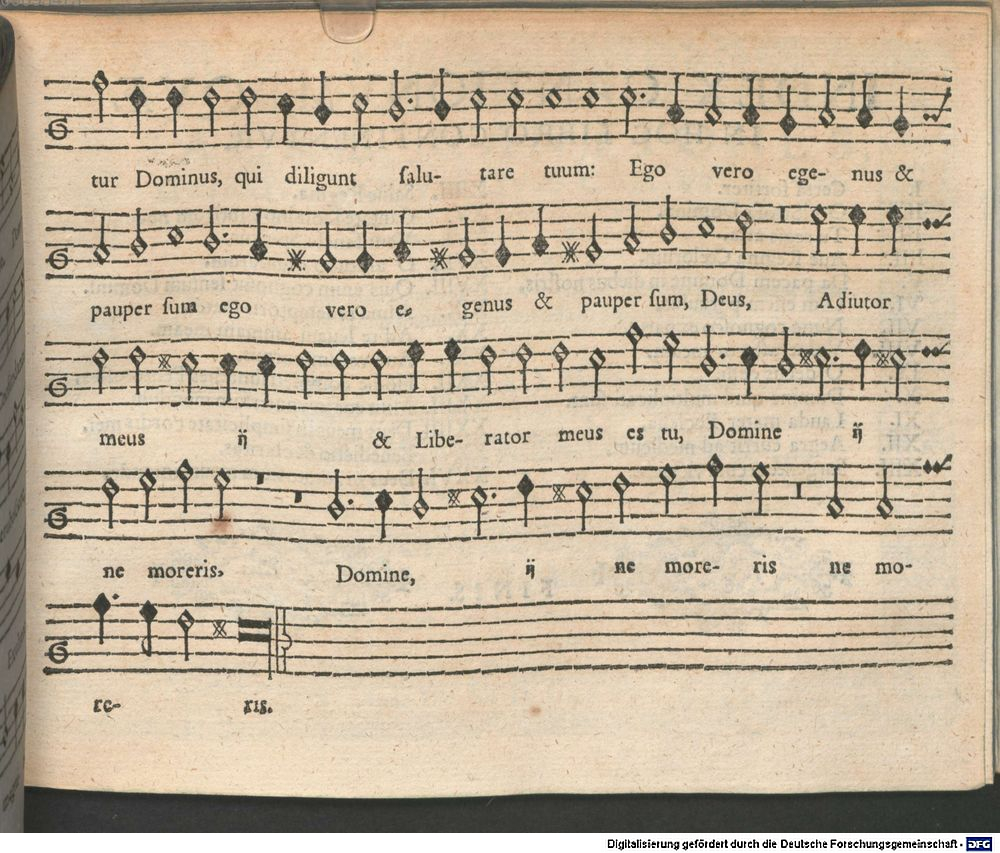 tur Dominus, qui diligunt ſalu- tare tuum: Ego vero ege- nus &
pauper ſum ego vero e- genus & pauper ſum, Deus, Adiutor
meus ij & Libe- rator meus es tu, Domine ij
ne moreris, Domine, ij ne more- ris ne mo-
re- ris.
Digitalisierung gefördert durch die Deutsche Forschungsgemeinschaft - DFG